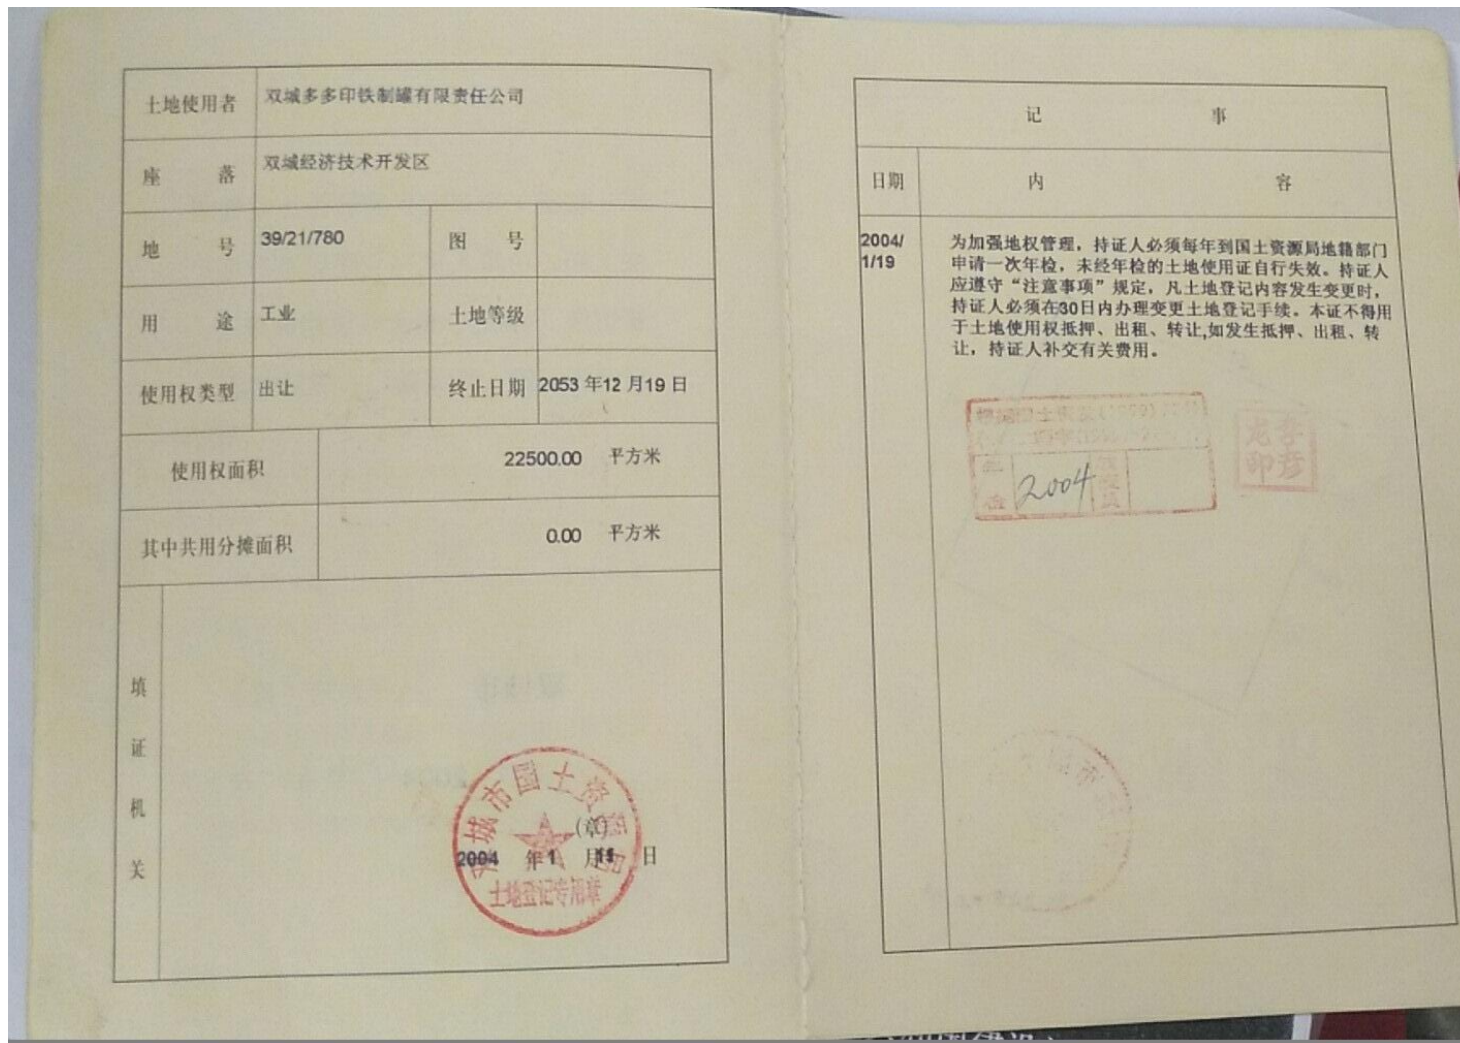 土地使用者 双城多多印铁制罐有限责任公司
座 落 双城经济技术开发区
地 号 39/21/780 图 号
用 途 工业 土地等级
使用权类型 出让 终止日期 2053 年 12 月 19 日
使用权面积 22500.00 平方米
其中共用分摊面积 0.00 平方米
填证机关
双城市国土资源局
(章)
2004 年 1 月 日
土地登记专用章
记 事
日期 内 容
2004/
1/19
为加强地权管理，持证人必须每年到国土资源局地籍部门
申请一次年检，未经年检的土地使用证自行失效。持证人
应遵守“注意事项”规定，凡土地登记内容发生变更时，
持证人必须在30日内办理变更土地登记手续。本证不得用
于土地使用权抵押、出租、转让,如发生抵押、出租、转
让，持证人补交有关费用。
年检 2004